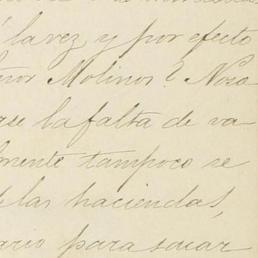 la vez y por efecto
Molinos
se la falta de va-
mente tampoco se
las haciendas,
para sacar